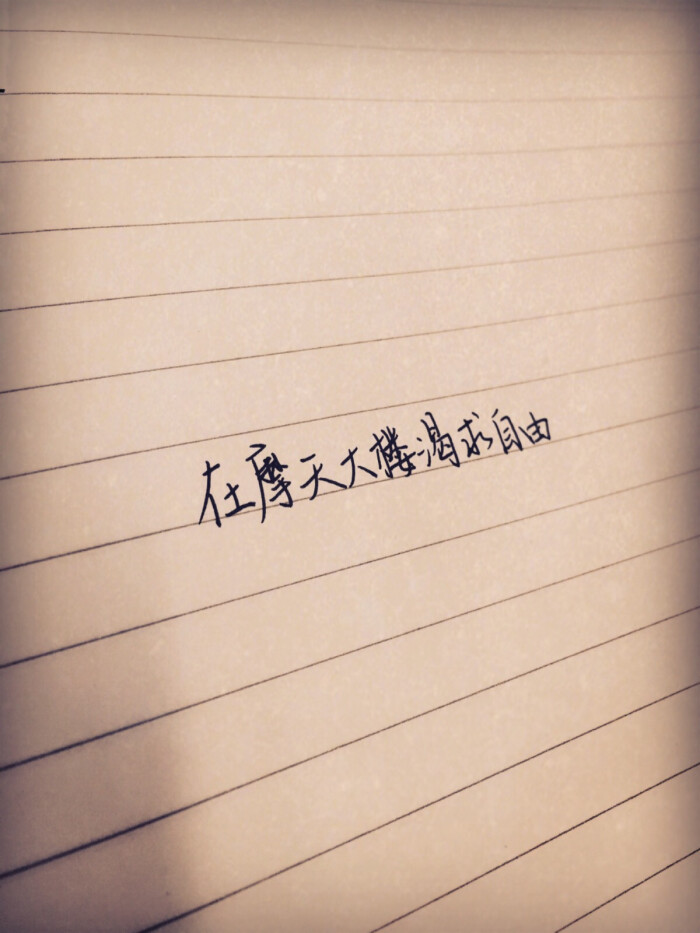 在摩天大楼渴求自由